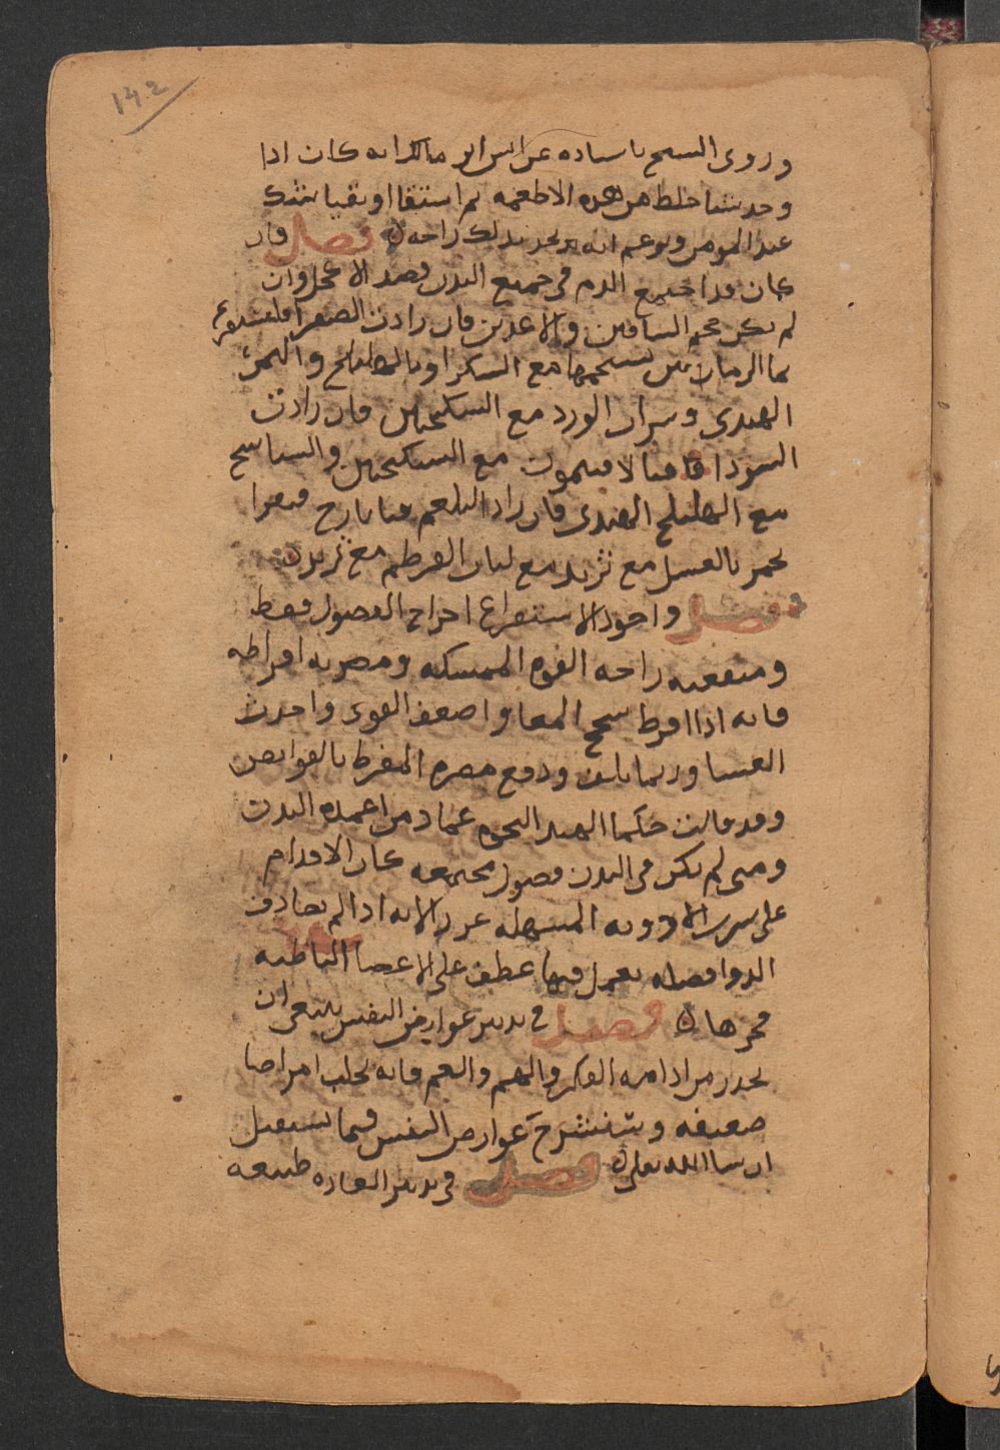 ١٤٢
وروى الشيخ باسناده عن انس ابن مالك انه كان اذا
وجد شيا خلط من هذه الاطعمه ثم استقا او تقيا بشك
عند المومن ويزعم انه يجد بذلك راحه فصل فان
كان قد اجتمع الدم في جميع البدن فصد الاكحل وان
لم يكن حجم الساقين والاخدعين فان زادت الصفرا فلتستفرغ
بما الرمانين بشحمهما مع السكر او بالهليلج والتمر
الهندى وشراب الورد مع السكنجبين فان زادت
السودا فما الافتيمون مع السكنجبين والبسابيج
مع الهليلج الهندى فان زاد البلغم فبايارج فيقرا
يخمر بالعسل مع تربد مع لباب القرطم مع تربد
فصل واجود الاستفراغ اخراج الفضول فقط
ومنفعته راحه القوه الممسكه ومضرته افراطه
فانه اذا افرط سحج المعا واضعف القوى واحدث
الغشا وربما تلف ودفع مضره المفرط بالقوابض
وقد قالت حكما الهند النجوم عماد من اعمده البدن
ومتى لم يكن في البدن فضول مجتمعه كان الاقدام
على شرب الادويه المسهله غررا لانه اذا لم يصادف
الدوا فضله يعمل فيها عطف على الاعضا الباطنه
فجردها فصل في تدبير عوارض النفس ينبغى ان
يحذر من ادامه الفكر والهم والغم فانه يجلب امراضا
صعبه وستشرح عوارض النفس فيما يستقبل
ان شا الله تعالى فصل في تدبير العاده طبيعه